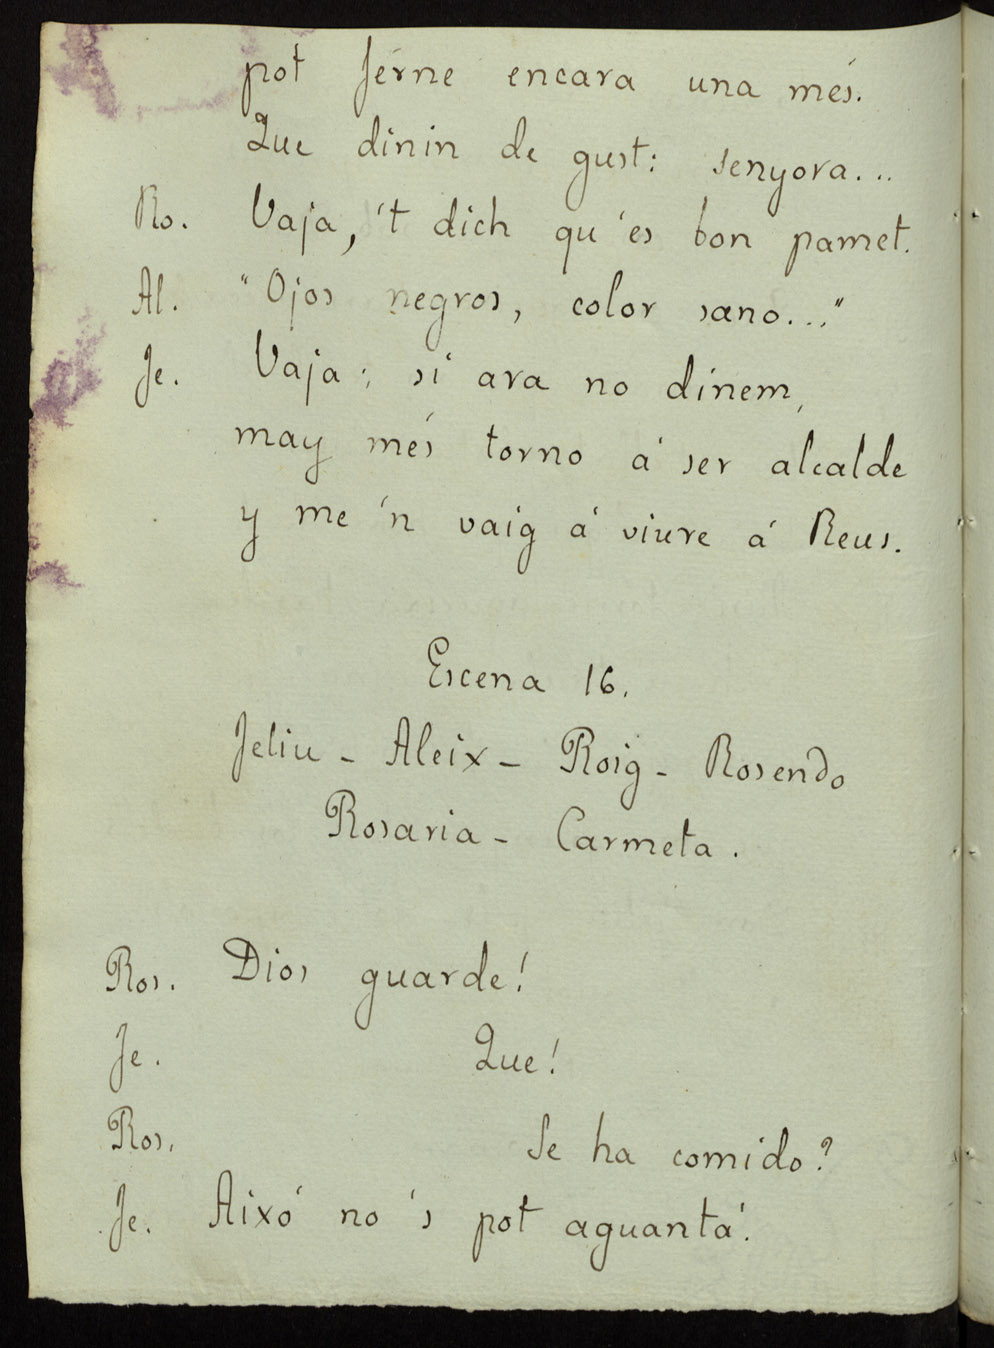 pot ferne encara una més.
Que dinin de gust: senyora...
Ro. Vaja, 't dich qu' es bon pamet.
Al. "Ojos negros, color sano..."
Fe. Vaja: si ara no dinem,
may més torno á ser alcalde
y me 'n vaig á viure á Reus.
Escena 16.
Feliu - Aleix - Roig - Rosendo
Rosaria - Carmeta.
Ros. Dios guarde!
Fe. Que!
Ros. Se ha comido?
Fe. Aixó no 's pot aguantá!